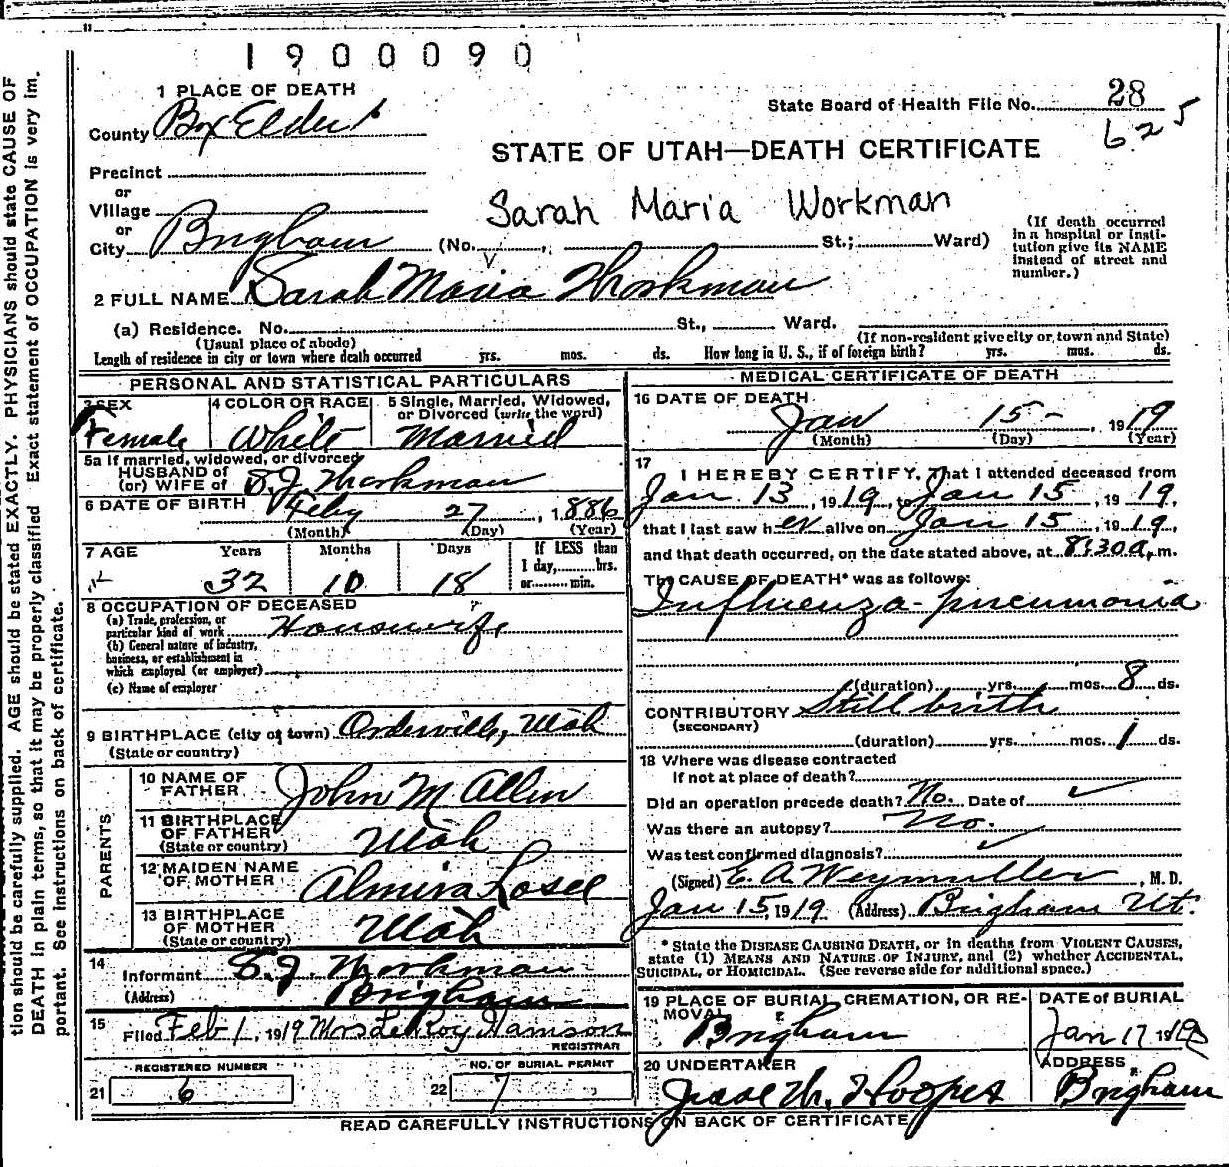 1900090
1 PLACE OF DEATH
County Box Elder
State Board of Health File No. 28
625
STATE OF UTAH—DEATH CERTIFICATE
Precinct
or
Village
or
City Brigham (No. , St.; Ward)
Sarah Maria Workman
(If death occurred in a hospital or institution give its NAME instead of street and number.)
2 FULL NAME Sarah Maria Workman
(a) Residence. No. St., Ward.
(Usual place of abode) (If non-resident give city or town and State)
Length of residence in city or town where death occurred yrs. mos. ds. How long in U. S., if of foreign birth? yrs. mos. ds.
PERSONAL AND STATISTICAL PARTICULARS
3 SEX Female
4 COLOR OR RACE White
5 Single, Married, Widowed, or Divorced (write the word) Married
5a If married, widowed, or divorced
HUSBAND of
(or) WIFE of S. J. Workman
6 DATE OF BIRTH Feby 27, 1886
(Month) (Day) (Year)
7 AGE Years Months Days If LESS than
1 day, hrs.
or min.
32 10 18
8 OCCUPATION OF DECEASED
(a) Trade, profession, or
particular kind of work Housewife
(b) General nature of industry,
business, or establishment in
which employed (or employer)
(c) Name of employer
9 BIRTHPLACE (city or town) Orderville, Utah
(State or country)
PARENTS
10 NAME OF
FATHER John M Allen
11 BIRTHPLACE
OF FATHER
(State or country) Utah
12 MAIDEN NAME
OF MOTHER Almira Losee
13 BIRTHPLACE
OF MOTHER
(State or country) Utah
14
Informant S. J. Workman
(Address) Brigham
15
Filed Feb 1, 1919 Mrs LeRoy Harrison
REGISTRAR
REGISTERED NUMBER
21 6
NO. OF BURIAL PERMIT
22 7
MEDICAL CERTIFICATE OF DEATH
16 DATE OF DEATH
Jan 15- 1919
(Month) (Day) (Year)
17
I HEREBY CERTIFY, That I attended deceased from
Jan 13, 1919, to Jan 15, 1919,
that I last saw her alive on Jan 15, 1919,
and that death occurred, on the date stated above, at 8:30 a. m.
The CAUSE OF DEATH* was as follows:
Influenza-pneumonia
(duration) yrs. mos. 8 ds.
CONTRIBUTORY Stillbirth
(SECONDARY)
(duration) yrs. mos. 1 ds.
18 Where was disease contracted
If not at place of death?
Did an operation precede death? No. Date of
Was there an autopsy? No.
Was test confirmed diagnosis?
(Signed) E. A. Weymuller, M. D.
Jan 15, 1919 (Address) Brigham Ut.
* State the DISEASE CAUSING DEATH, or in deaths from VIOLENT CAUSES,
state (1) MEANS AND NATURE OF INJURY, and (2) whether ACCIDENTAL,
SUICIDAL, or HOMICIDAL. (See reverse side for additional space.)
19 PLACE OF BURIAL, CREMATION, OR REMOVAL
Brigham
DATE of BURIAL
Jan 17 1919
20 UNDERTAKER
ADDRESS
Brigham
READ CAREFULLY INSTRUCTIONS ON BACK OF CERTIFICATE
tion should be carefully supplied. AGE should be stated EXACTLY. PHYSICIANS should state CAUSE OF
DEATH in plain terms, so that it may be properly classified. Exact statement of OCCUPATION is very im-
portant. See instructions on back of certificate.